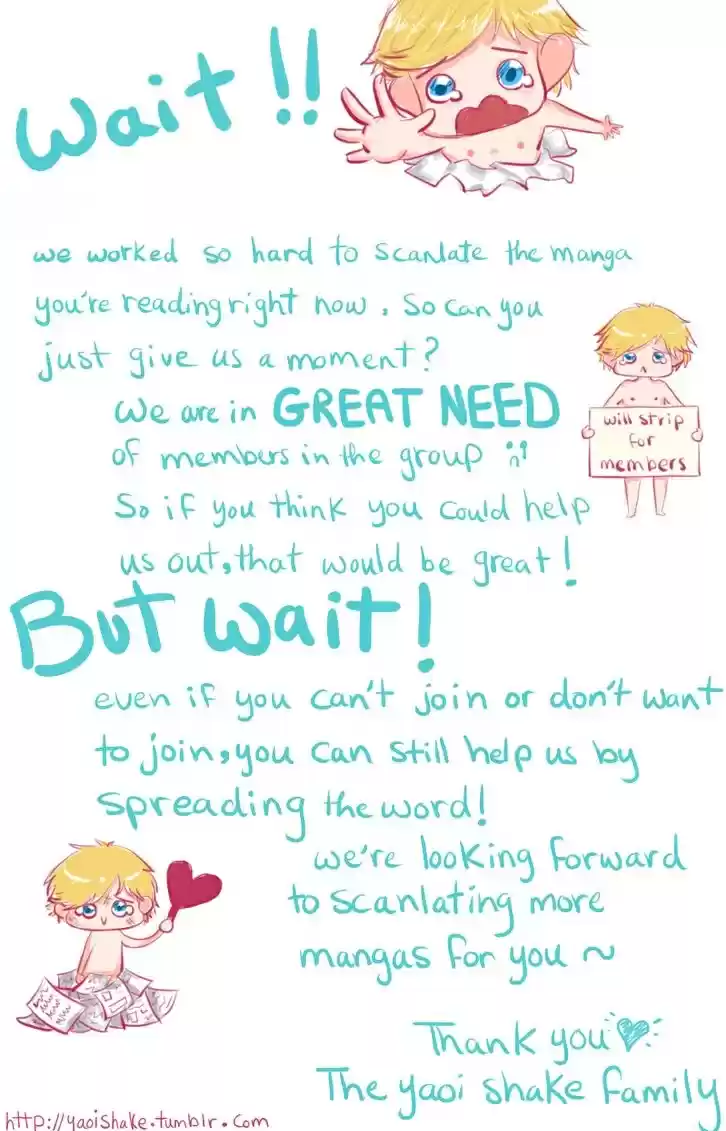 Wait!!
we worked so hard to scanlate the manga
you're reading right now. So can you
just give us a moment?
We are in GREAT NEED
of members in the group
will strip
for
members
So if you think you could help
us out, that would be great!
But wait!
even if you can't join or don't want
to join, you can still help us by
spreading the word!
we're looking forward
to scanlating more
mangas for you ~
Thank you
The yaoi shake family
http://yaoishake.tumblr.com